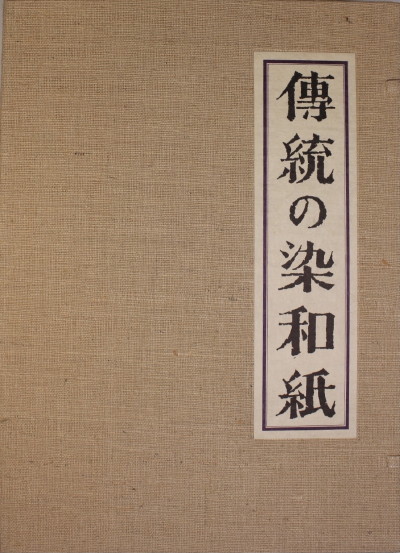 傳統の染和紙